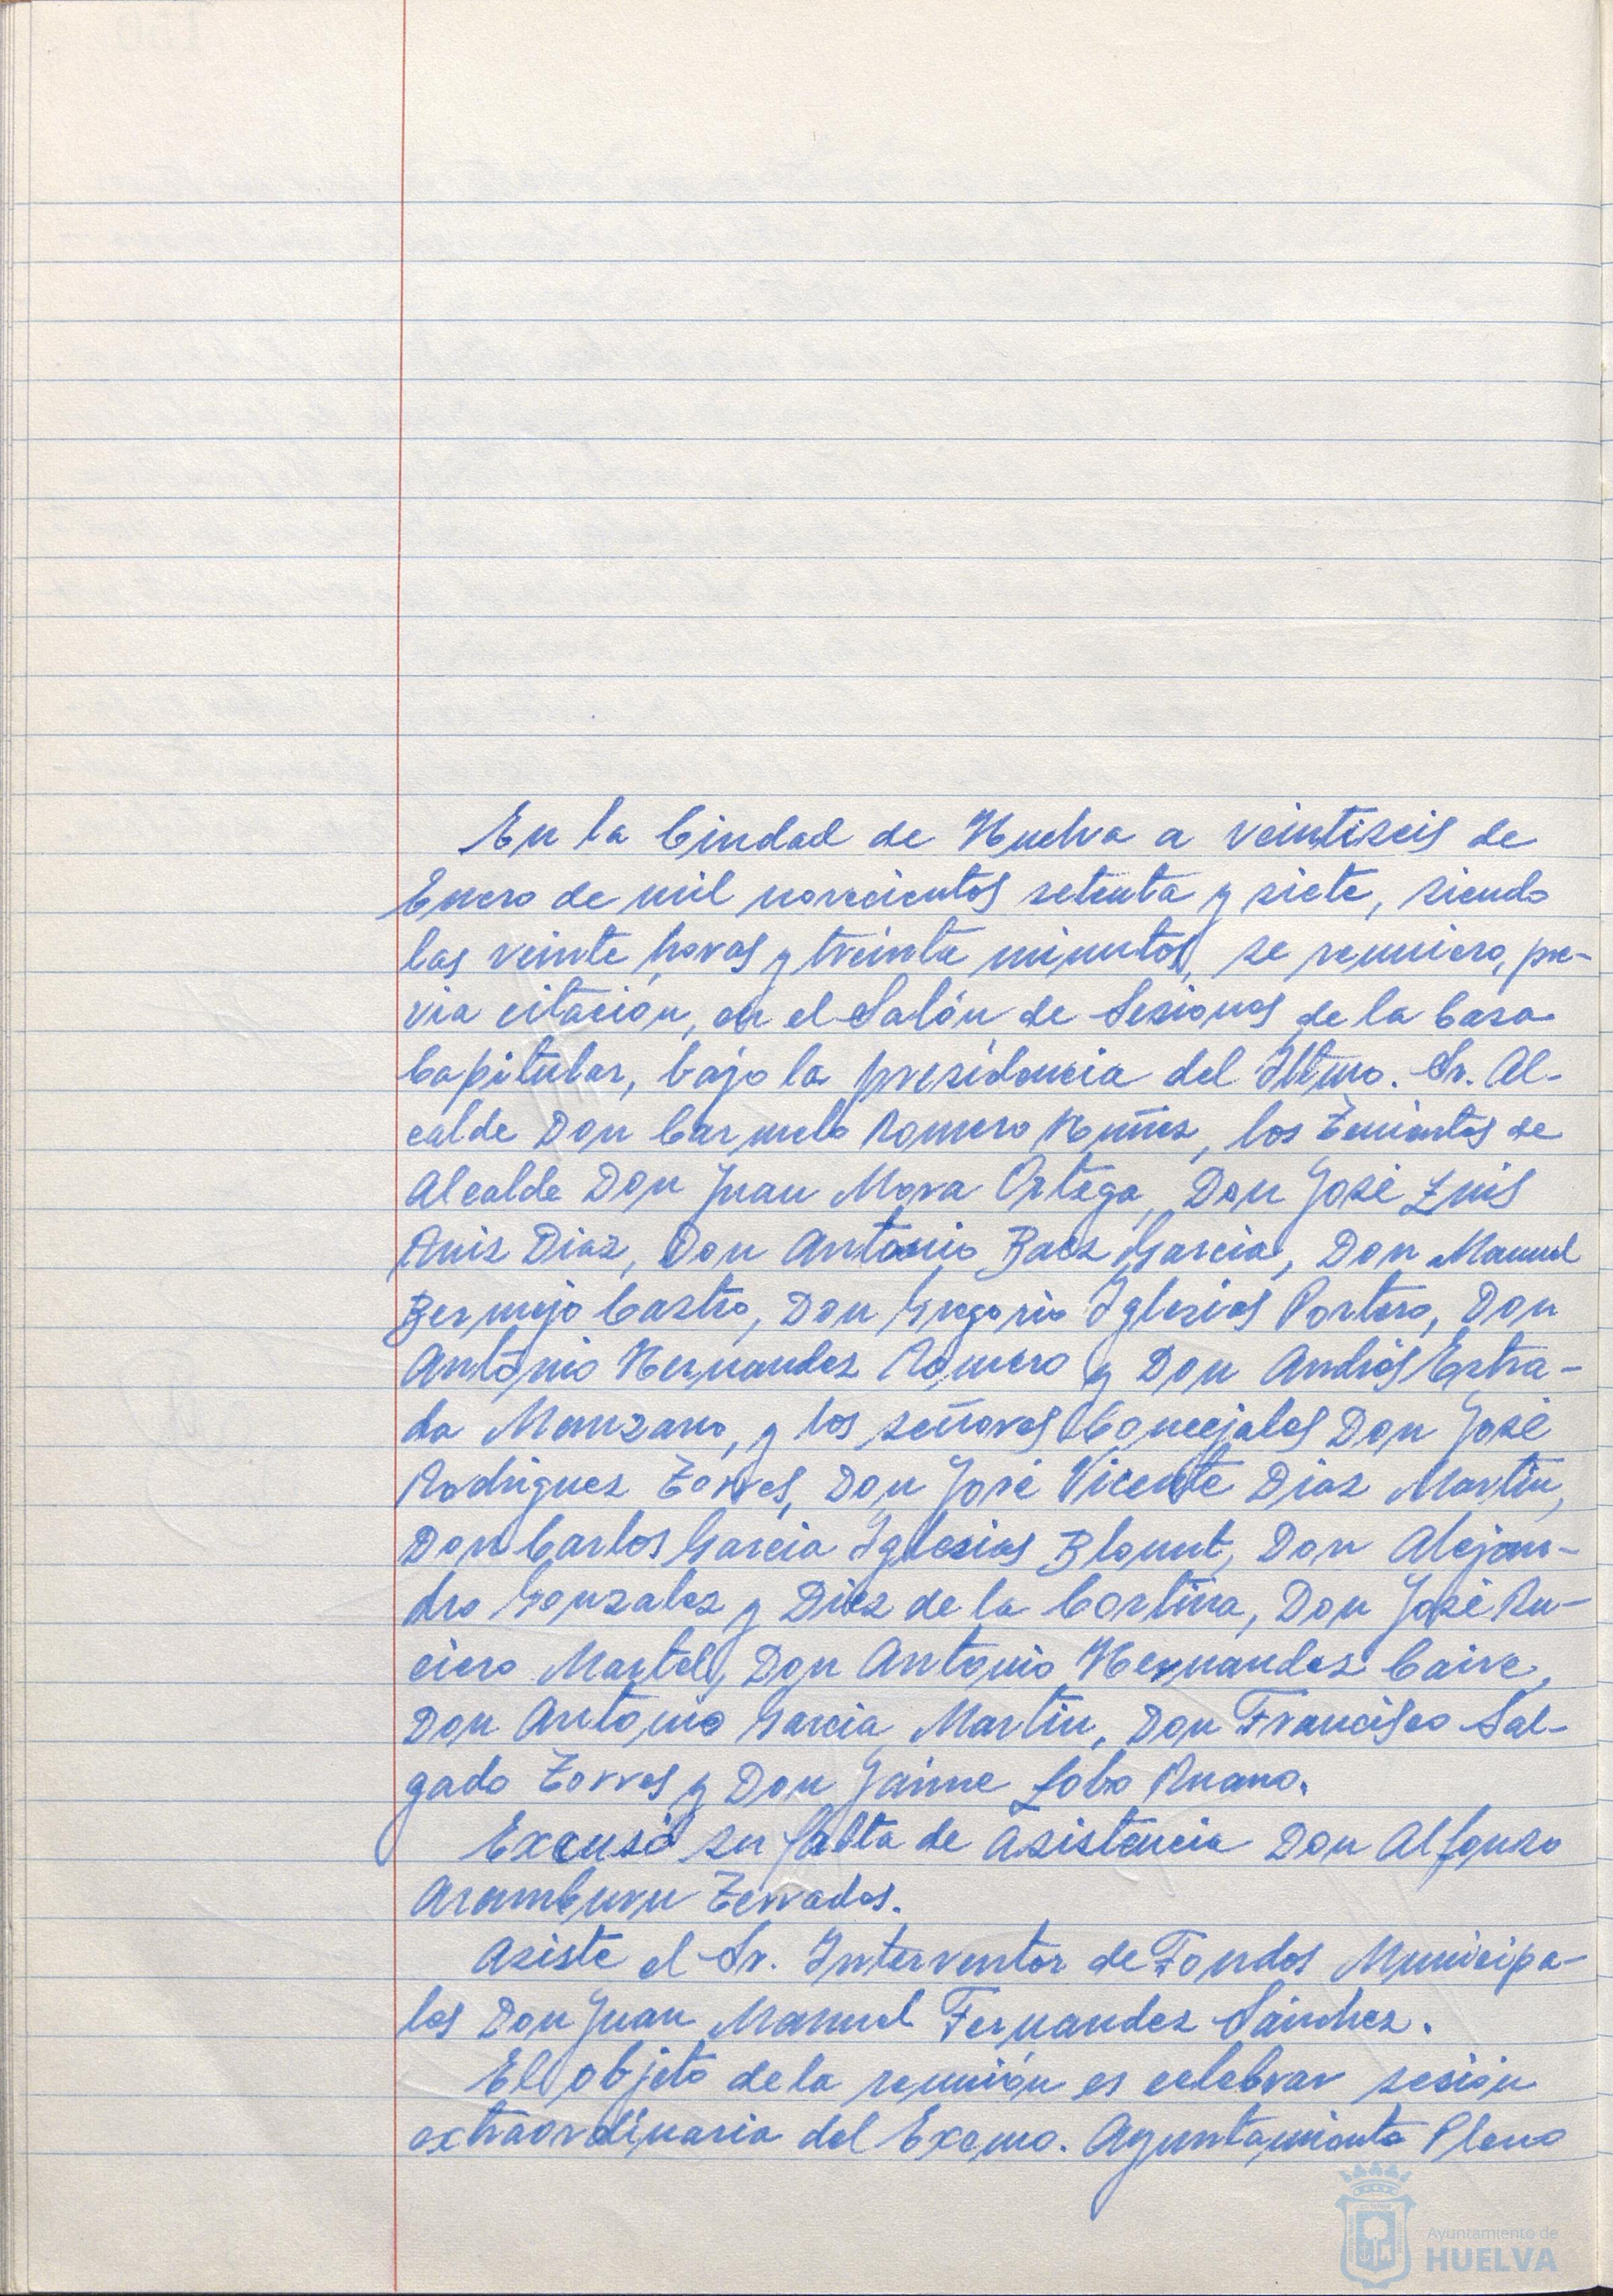 En la Ciudad de Huelva a veintiseis de
Enero de mil novecientos setenta y siete, siendo
las veinte horas y treinta minutos, se reuniero, pre-
via citación, en el Salón de Sesiones de la Casa
Capitular, bajo la presidencia del Iltmo. Sr. Al-
calde Don Carmelo Romero Nuñez, los Tenientes de
Alcalde Don Juan Mora Ortega, Don José Luis
Ruiz Diaz, Don Antonio Baez Garcia, Don Manuel
Bermejo Castro, Don Gregorio Iglesias Portero, Don
Antonio Hernandez Romero y Don Andrés Estra-
da Manzano, y los señores Concejales Don José
Rodriguez Torres, Don José Vicente Diaz Martin,
Don Carlos Garcia Iglesias Blount, Don Alejan-
dro Gonzalez y Diez de la Cortina, Don José Ru-
ciero Martel, Don Antonio Hernandez Caire,
Don Antonio Garcia Martin, Don Francisco Sal-
gado Torres y Don Jaime Lobo Ruano.
Excusó su falta de asistencia Don Alfonso
Aramburu Terrados.
Asiste el Sr. Interventor de Fondos Municipa-
les Don Juan Manuel Fernandez Sánchez.
El objeto de la reunión es celebrar sesión
extraordinaria del Excmo. Ayuntamiento Pleno
Ayuntamiento de
HUELVA